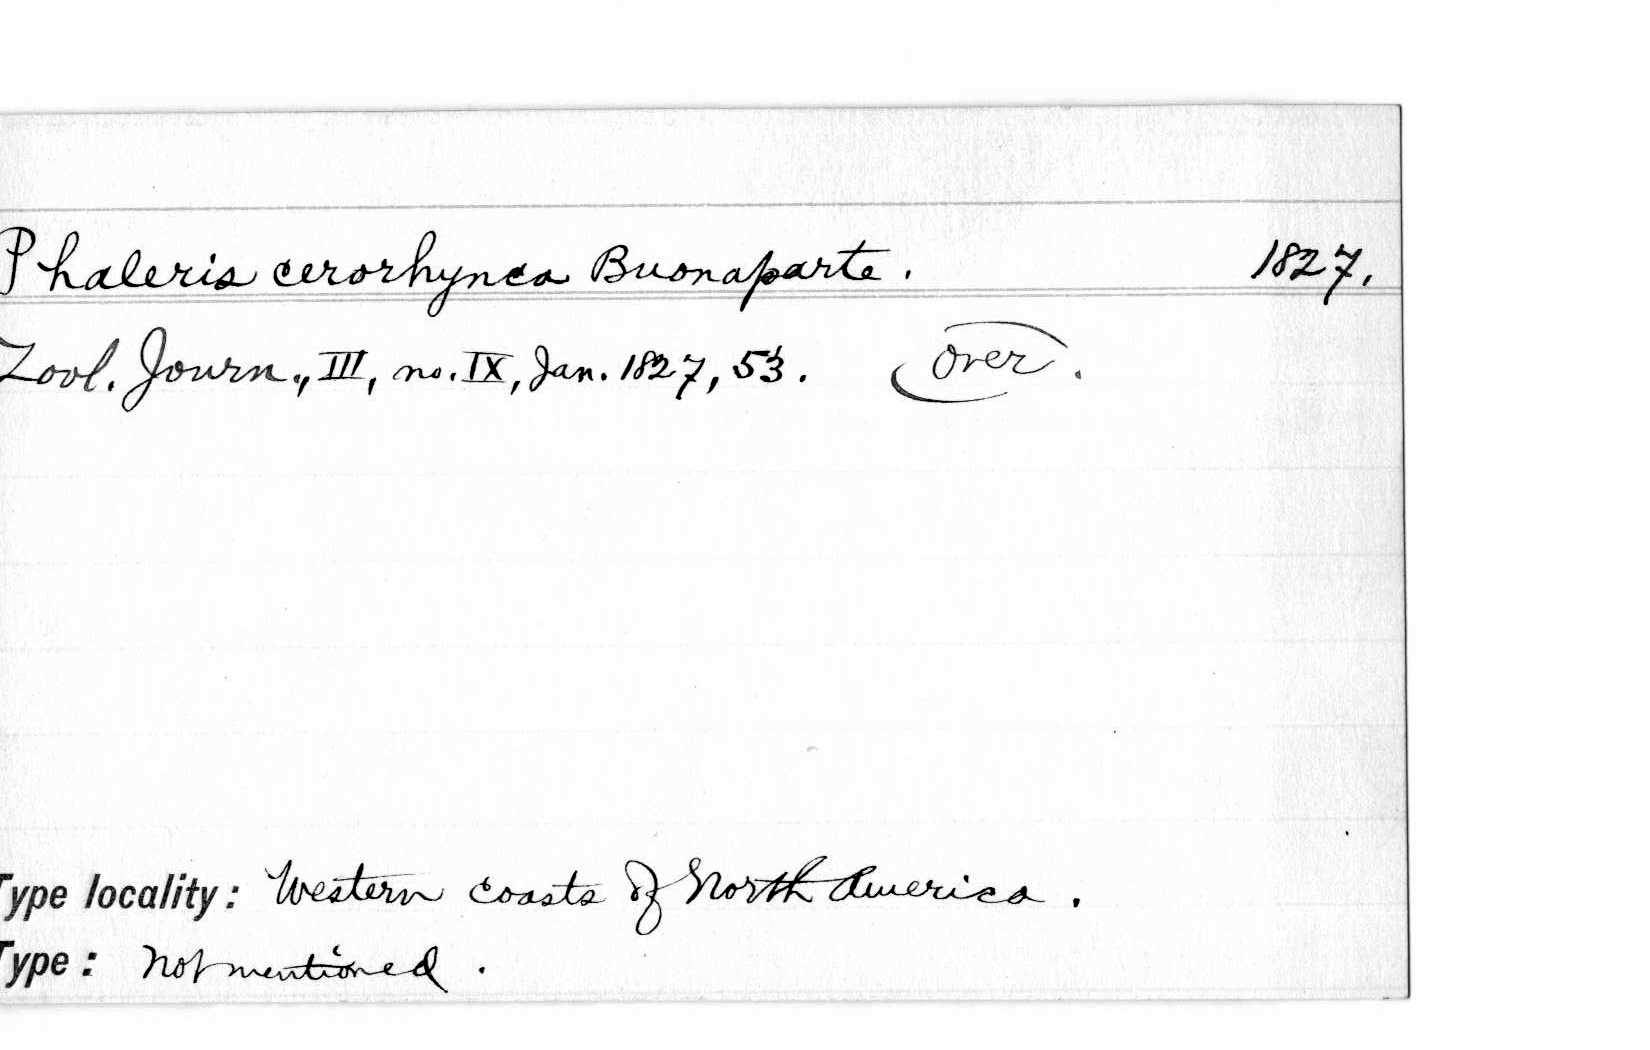 Phaleris cerorhynca Buonaparte. 1827.
Zool. Journ., III, no. IX, Jan. 1827, 53. Over.
Type locality: Western coasts of North America.
Type: Not mentioned.